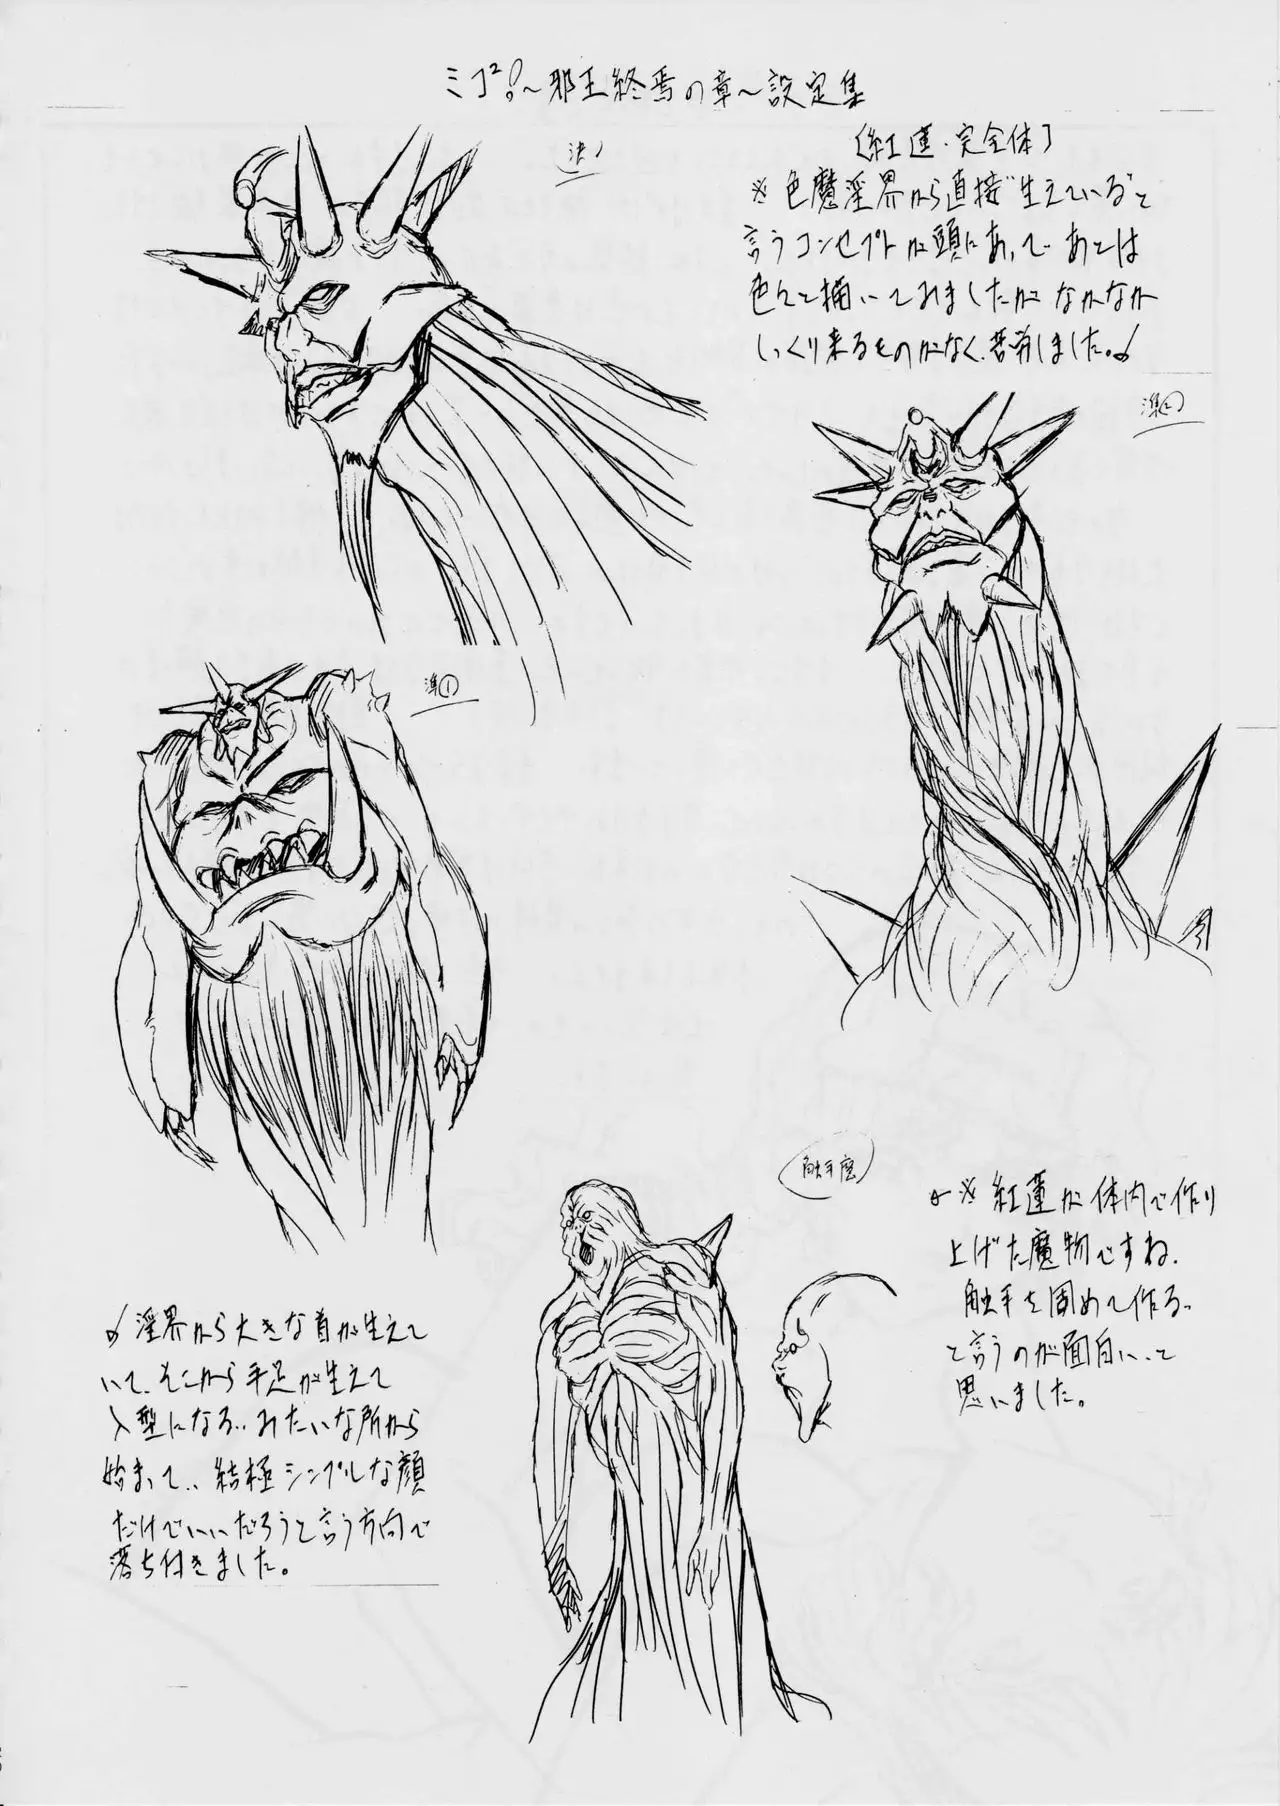 ミコ²!〜邪王終焉の章〜設定集
〔紅蓮・完全体〕
※色魔淫界から直接"生えている"と
言うコンセプトが頭にあって、あとは
色々と描いてみましたが なかなか
しっくり来るものがなく、苦労しました。
決!
準②
準①
触手魔
※紅蓮が体内で作り
上げた魔物ですね、
触手を固めて作る..
と言うのが面白い、と
思いました。
淫界から大きな首が生えて
いて、そこから手足が生えて
人型になる..みたいな所から
始まって..結極シンプルな顔
だけでいいだろうと言う方向で
落ち付きました。